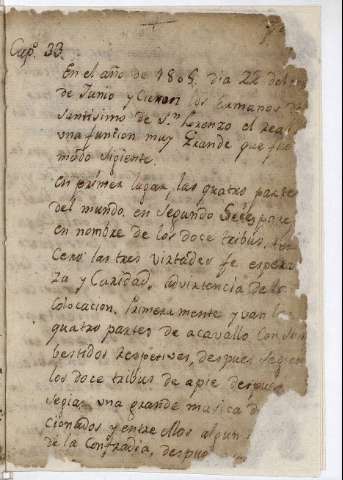 Cap.º 33.
En el año de 1805. dia 22 del
de Junio y Cieron los hermanos
Santissimo de S.n Lorenzo el Rea
una funcion muy grande que fue
modo sigiente.
En primer lugar, las quatro partes
del mundo, en segundo
en nombre de los doce tribus,
Cero las tres virtudes fe espera
za y Caridad, advirtencia de la
colocacion. Primeramente yvan la
quatro partes de acavallo con sus
bestidos respetives, despues segian
los doce tribus de a pie despues
segia una grande musica de
cionados y entre ellos algun
de la Confradia, despu